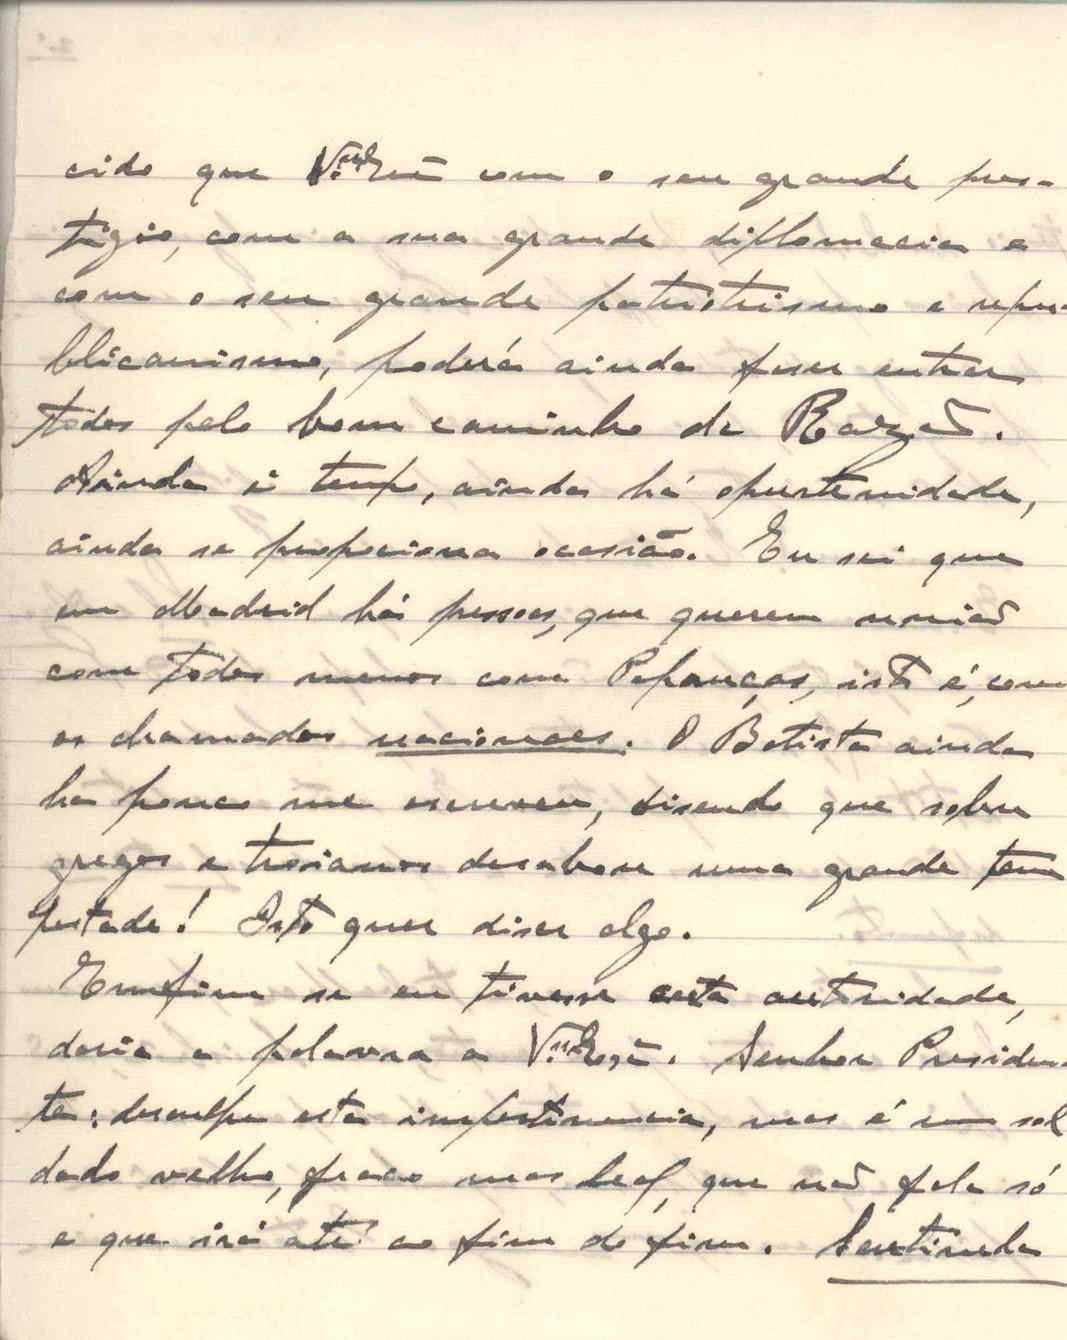 cido que V.ª Exª com o seu grande pres-
tigio, com a sua grande diplomacia e
com o seu grande patriotismo e repu-
blicanismo, poderá ainda faser entrar
todos pelo bom caminho da Razão.
Ainda é tempo, ainda há oportunidade,
ainda se proporciona ocasião. Eu sei que
em Madrid há pessoas, que querem união
com todos menos com Papanças, isto é, com
os chamados nacionaes. O Batista ainda
ha pouco me escreveu, disendo que sobre
gregos e troianos desabou uma grande tem
pestade! Isto quer diser algo.
Emfim se eu tivesse certa autoridade,
daria a palavra a V.ª Exª. Senhor Presiden-
te: desculpe esta impertinencia, mas é um sol
dado velho, fraco mas leal, que não fala só
e que irá até ao fim do fim. Sentinela